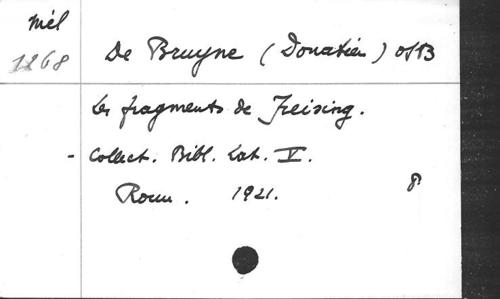 Mél
1268
De Bruyne (Donatien) OSB
Les fragments de Freising.
- Collect. Bibl. Lat. V.
Rome. 1921. 8°